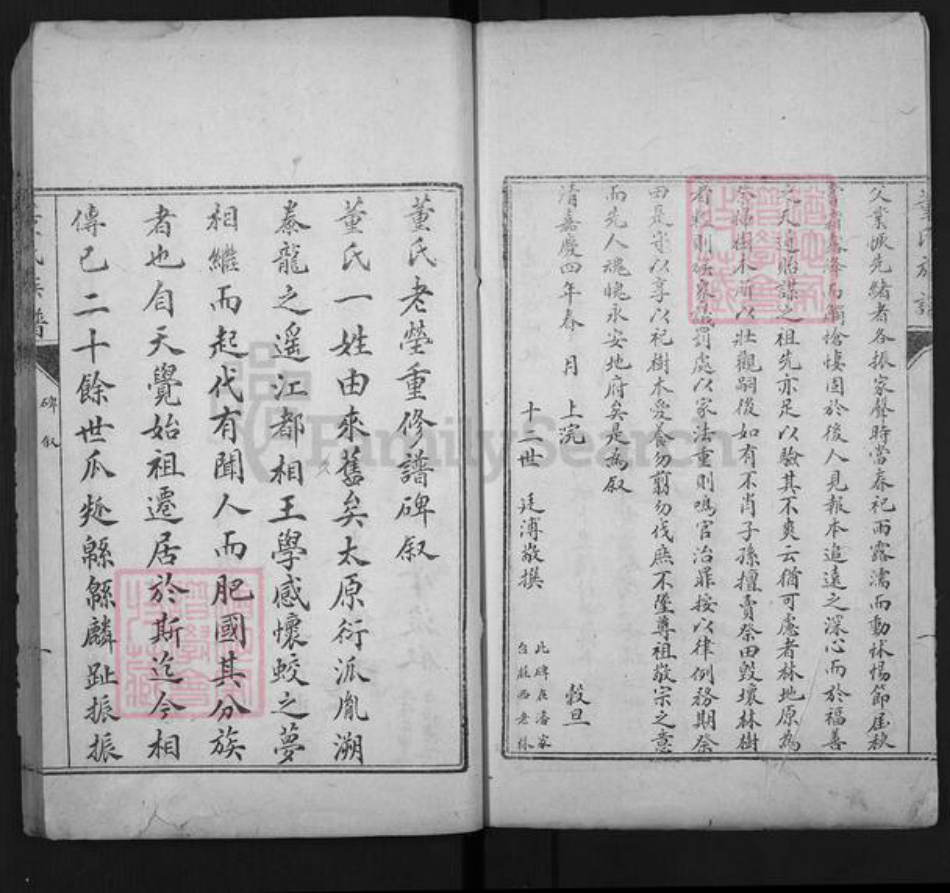 董氏族譜
父業派先緒者各振家聲時當春祀雨露濡而動怵惕節届秋
嘗霜露降而觸愴悽固於後人見報本追遠之深心而於福善
之天道貽謀之祖先亦足以驗其不爽云猶可慮者林地原為
祭掃樹木所以壯觀嗣後如有不肖子孫擅賣祭田毀壞林樹
者輕則破家議罰處以家法重則鳴官治罪按以律例務期祭
田是承以享以祀樹木愛養勿翦勿伐庶不墜尊祖敬宗之意
而先人魂魄永安地府矣是為叙
清嘉慶四年春 月 上浣 穀旦
十二世 廷溥敬撰
此碑在潘家
台莊西老林
董氏老塋重修譜碑叙
董氏一姓由來舊矣太原衍派胤溯
豢龍之遥江都相王學感懷蛟之夢
相繼而起代有聞人而肥國其分族
者也自天覺始祖遷居於斯迄今相
傳已二十餘世瓜瓞緜緜麟趾振振
董氏族譜
碑叙
FamilySearch